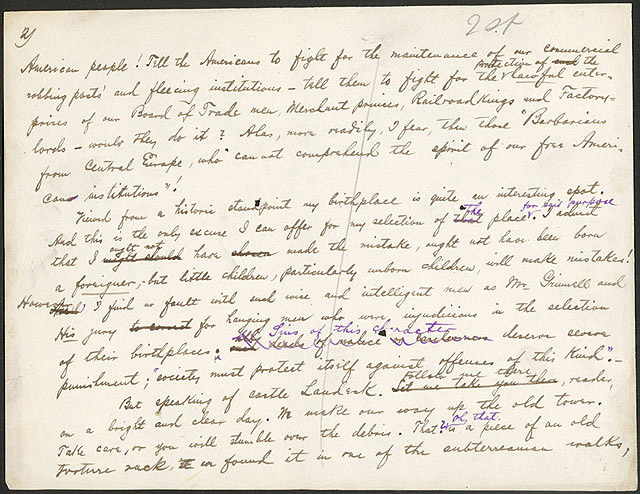 2)
American people! Tell the Americans to fight for the maintenance of our commercial
robbing posts and fleecing institutions – tell them to fight for the protection of and the lawful enter-
prises of our Board of Trade men, Merchant princes, Railroad Kings and Factory-
lords – would they do it? Alas, more readily, I fear, than those "Barbarians
from Central Europe, who cannot comprehend the spirit of our free Ameri-
can institutions"!
Viewed from a historic standpoint my birthplace is quite an interesting spot.
And this is the only excuse I can offer for my selection of that the place for said purpose. I admit
that I might should ought not have chosen made the mistake, ought not have been born
a foreigner; but little children, particularly unborn children, will make mistakes!
However, I find no fault with such wise and intelligent men as Mr. Grinnell and
His jury to correct for hanging men who were injudicious in the selection
of their birthplaces. Sins of this character deserve severe
punishment; "society must protect itself against offenses of this kind"–
But speaking of castle Landeck. Let me take you there, Follow me there, reader,
on a bright and clear day. We make our way up the old tower.
Take care, or you will tumble over the debris. That? Oh, that is a piece of an old
torture rack, we found it in one of the subterranean walks,